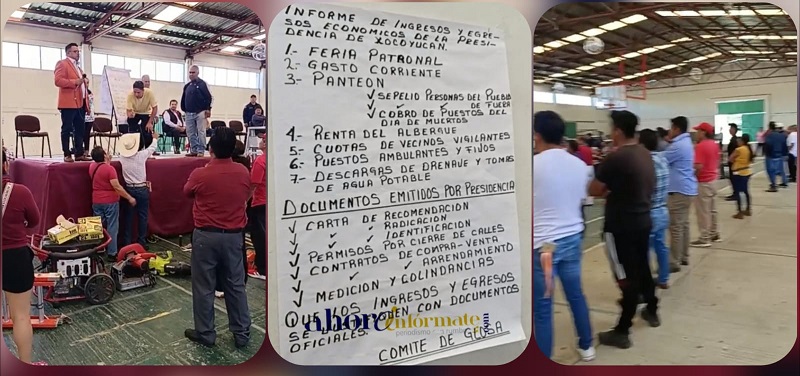 INFORME DE INGRESOS Y EGRE-
SOS ECONOMICOS DE LA PRESI-
DENCIA DE XOCOYUCAN.
1.- FERIA PATRONAL
2.- GASTO CORRIENTE
3.- PANTEON
✓ SEPELIO PERSONAS DEL PUEBLO
✓ ✓ ✓ DE FUERA
✓ COBRO DE PUESTOS DEL
DIA DE MUERTOS
4.- RENTA DEL ALBERGUE
5.- CUOTAS DE VECINOS VIGILANTES
6.- PUESTOS AMBULANTES Y FIJOS
7.- DESCARGAS DE DRENAJE Y TOMAS
DE AGUA POTABLE
DOCUMENTOS EMITIDOS POR PRESIDENCIA
✓ CARTA DE RECOMENDACION
✓ ✓ ✓ RADICACION
✓ ✓ ✓ IDENTIFICACION
✓ PERMISOS POR CIERRE DE CALLES
✓ CONTRATOS DE COMPRA-VENTA
✓ ✓ ✓ ARRENDAMIENTO
✓ MEDICION Y COLINDANCIAS
QUE LOS INGRESOS Y EGRESOS
SE CON DOCUMENTOS
OFICIALES.
ahora enformate.com
COMITE DE GLOSA